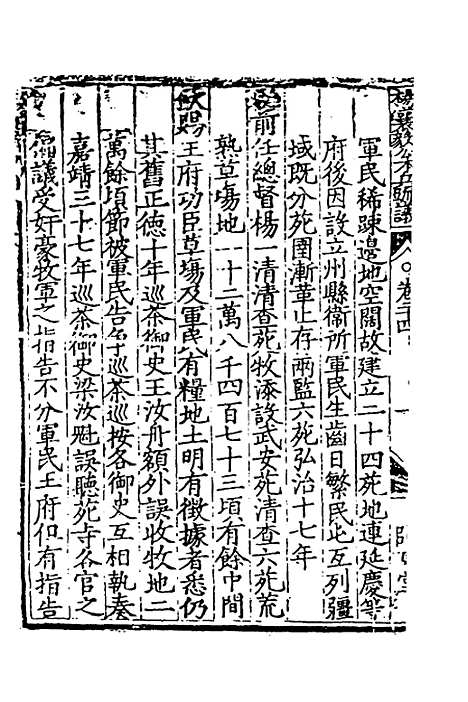 軍民稀踈邊地空闊故建立二十四苑地連延慶等
府後因設立州縣衛所軍民生齒日繁民屯互列疆
域既分苑圉漸革止存兩監六苑弘治十七年
前任總督楊一清清查苑牧添設武安苑清查六苑荒
熟草塲地一十二萬八千四百七十三頃有餘中間
欽賜王府功臣草塲及軍民有糧地土明有徵據者悉仍
其舊正德十年巡茶御史王汝舟額外誤收牧地二
萬餘頃節被軍民告爭巡茶巡按各御史互相執奏
嘉靖三十七年巡茶御史梁汝魁誤聽苑寺各官之
議受奸豪牧軍之指告不分軍民王府但有指告
卷二十四